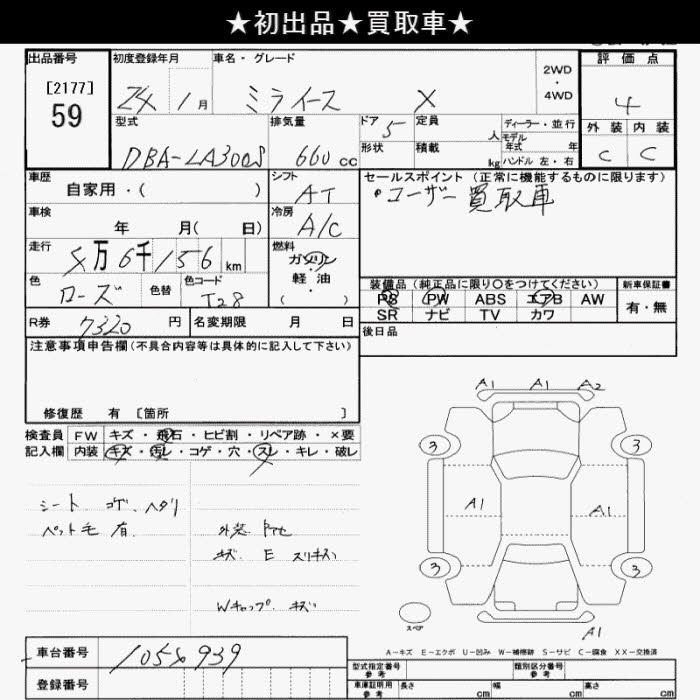 ★初出品★買取車★
出品番号 初度登録年月 車名・グレード 評価点
[2177] 2WD ・ 4WD
59 24 1月 ミライース X 4
型式 排気量 ドア 5 定員 人 ディーラー・並行 外装 内装
モデル年式 年
DBA-LA300S 660cc 形状 積載 kg ハンドル 左・右 C C
車歴 シフト セールスポイント (正常に機能するものに限ります)
自家用・( ) AT ・ユーザー買取車
車検 冷房
年 月( 日) A/C
走行 燃料
万6千156km ガソリン・軽油・( )
色 色替 色コード 装備品 (純正品に限り○をつけてください) 新車保証書
ローズ T28 PS PW ABS エアB AW 有・無
SR ナビ TV カワ
R券 7320円 名変期限 月 日 後日品
注意事項申告欄(不具合内容等は具体的に記入して下さい)
修復歴 有 [箇所 ]
A1 A1 A2
検査員 FW キズ・飛石・ヒビ割・リペア跡・×要
記入欄 内装 キズ・汚レ・コゲ・穴・スレ・キレ・破レ
3 3
シート コゲ ヘタリ
ペット毛 有
外装
キズ E スリキズ
Wキャップ キズ
A1 A1
3 3
スペア
A1
A-キズ E-エクボ U-凹み W-補修跡 S-サビ C-腐食 XX-交換済
車台番号 939
登録番号
型式指定番号 参考 類別区分番号 参考
車庫証明用 参考 長さ cm 幅 cm 高さ cm